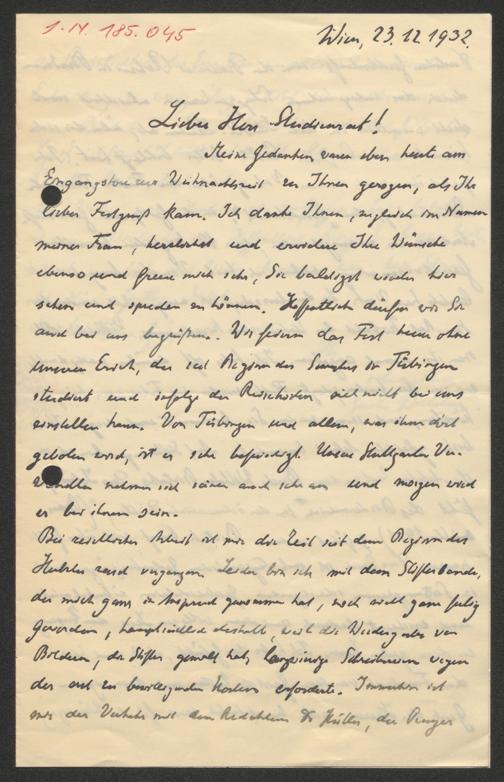 I.N. 185.045
Wien, 23.12.1932.
Lieber Herr Studienrat!
Meine Gedanken waren eben heute am
Eingangstore zur Weihnachtszeit zu Ihnen gezogen, als Ihr
lieber Festgruß kam. Ich danke Ihnen, zugleich im Namen
meiner Frau, herzlichst und erwidere Ihre Wünsche
ebenso und freue mich sehr, Sie baldigst wieder hier
sehen und sprechen zu können. Hoffentlich dürfen wir Sie
auch bei uns begrüßen. Wir feiern das Fest heuer ohne
unseren Erich, der seit Beginn des Semesters in Tübingen
studiert und infolge der Reisekosten nicht bei uns
einstellen kann. Von Tübingen und allem, was ihm dort
geboten wird, ist er sehr befriedigt. Unsere Stuttgarter Ver-
wandten nehmen sich seiner auch sehr an und morgen wird
er bei ihnen sein.
Bei reichlicher Arbeit ist mir die Zeit seit dem Beginn des
Herbstes rasch vergangen. Leider bin ich mit dem Stifterbande,
der mich ganz in Anspruch genommen hat, noch nicht ganz fertig
geworden, hauptsächlich deshalb, weil die Wiedergabe von
Bildern, die Stifter gemalt hat, langwierige Schreibereien wegen
der erst zu bewilligenden Kosten erforderte. Immerhin ist
mir der Verkehr mit dem Redakteur Dr Hüller, der Prager